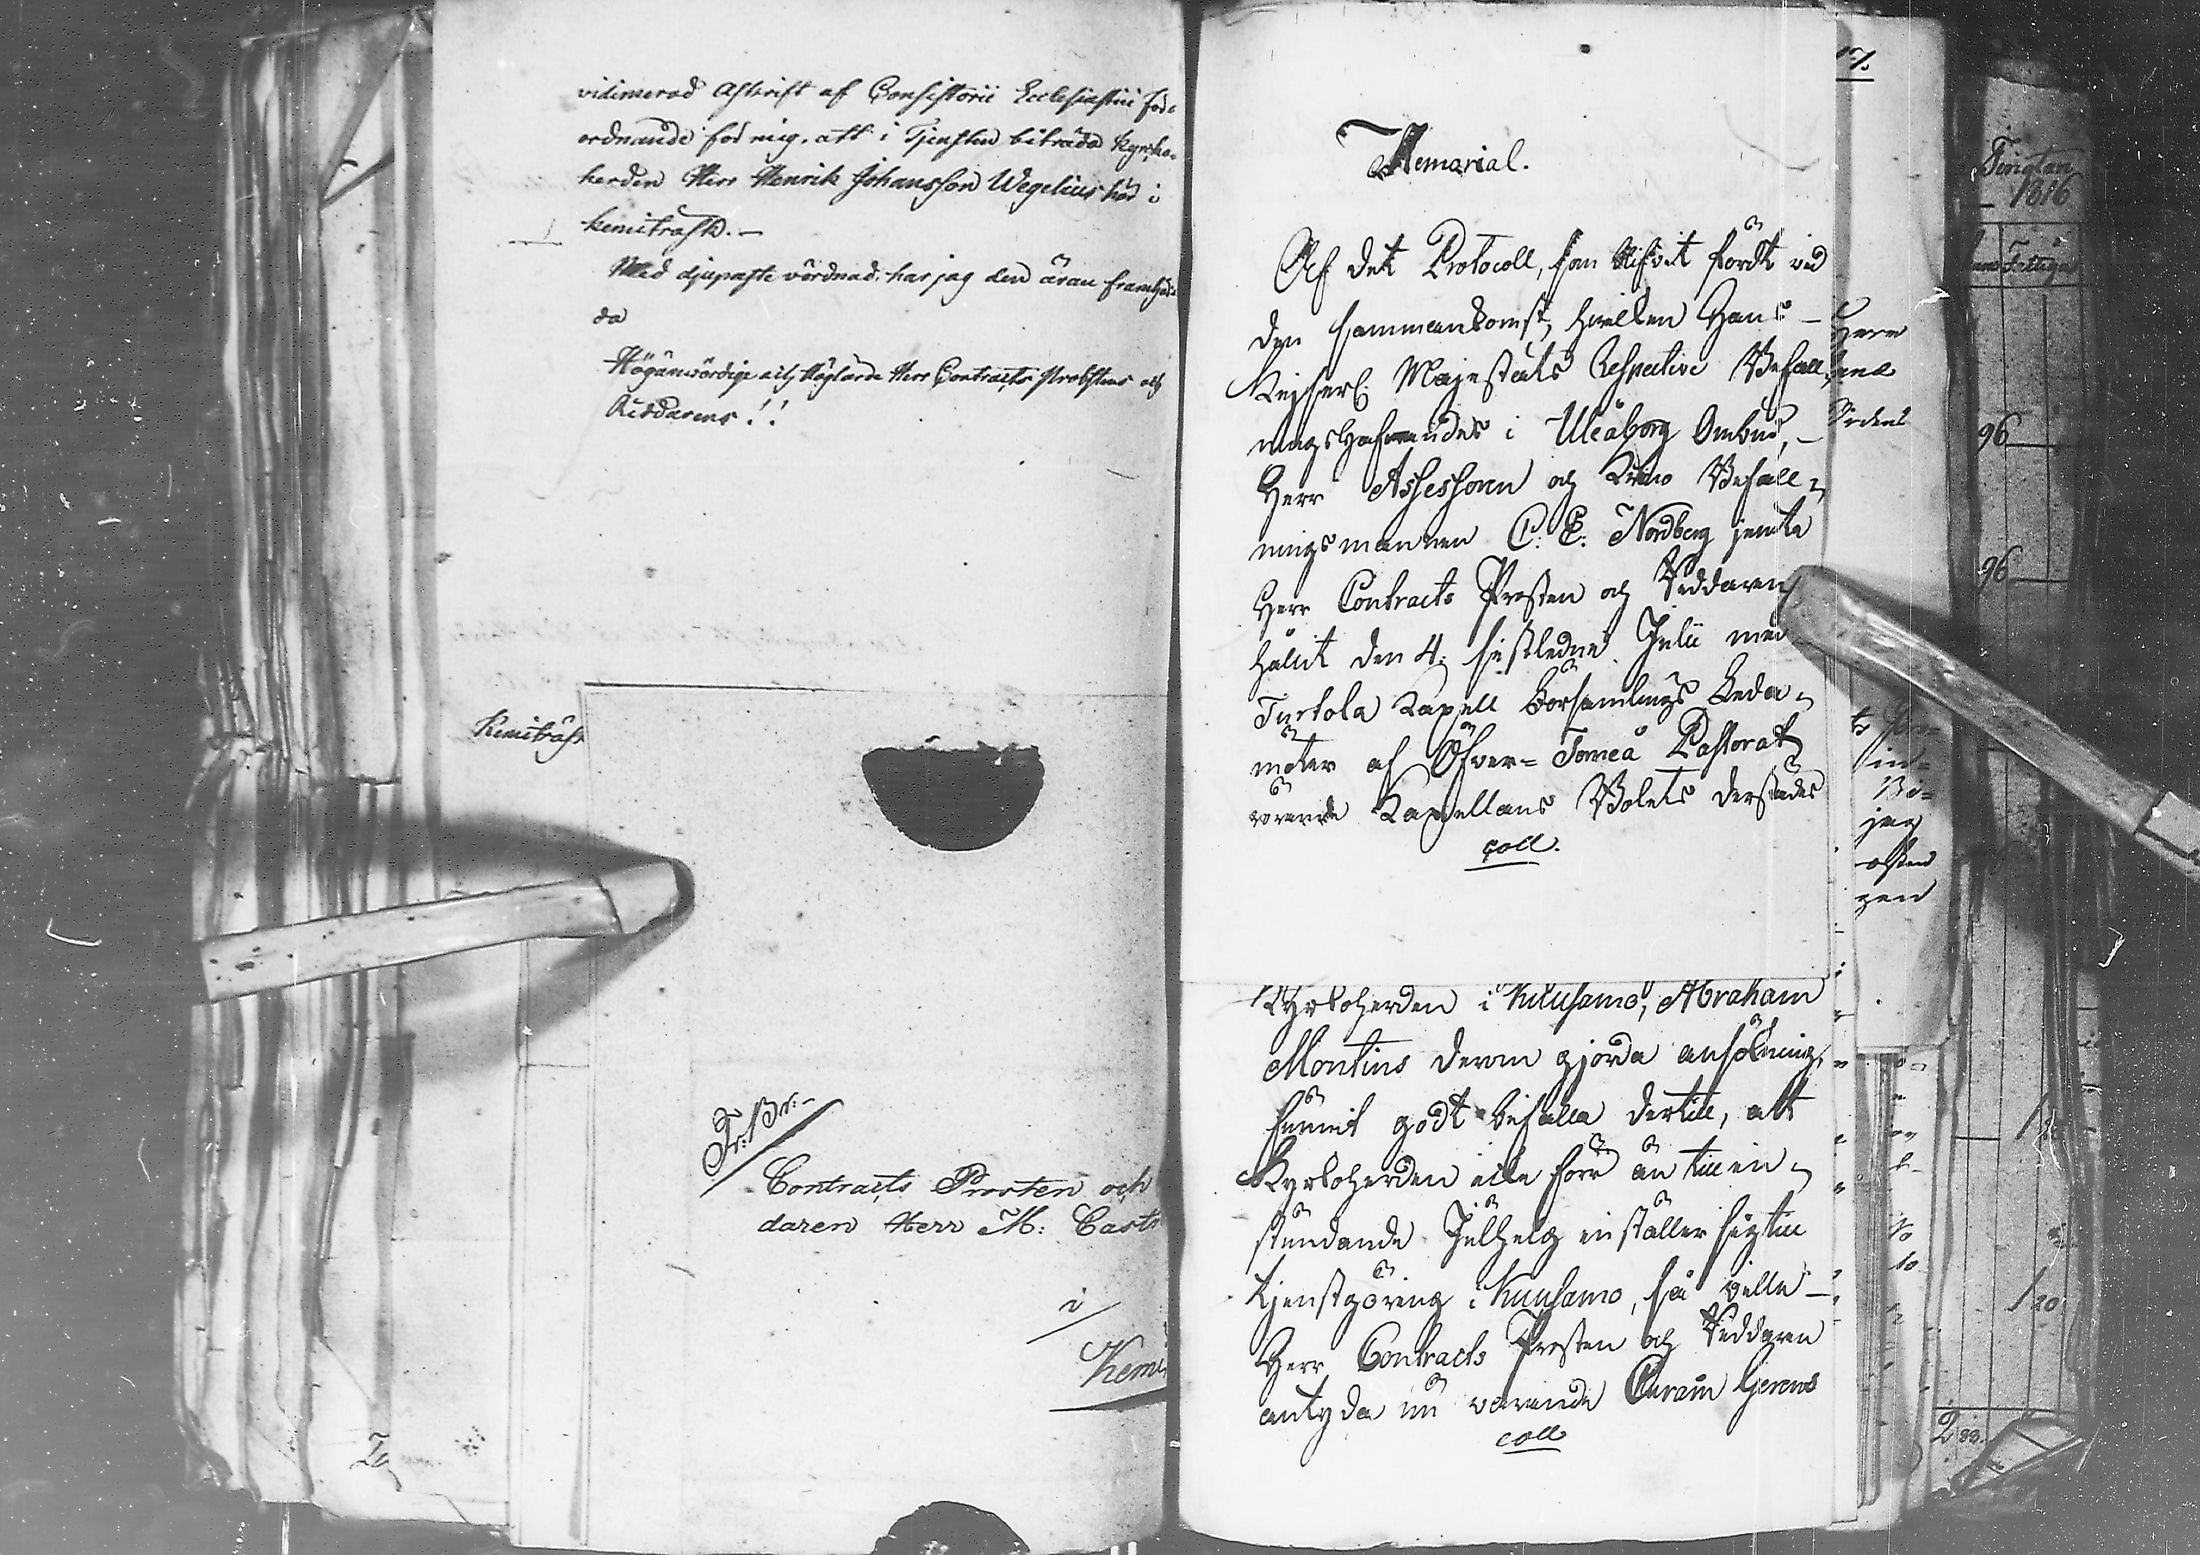 vidimerad Afskrift af Consistorii Ecclesiastici för-
ordnande för mig, att i Tjensten biträda Kyrko-
herden Herr Henrik Johansson Wegelius här i
Kemiträsk.—
Med djupaste vördnad har jag den äran framhär-
da
Högärevördige och Höglärde Herr Contracts Probstens och
Riddarens!!
Kemiträsk
Fr: Br:
Contracts Prosten och
daren Herr M: Cast
i
Kemi
Memorial.
Af det Protocoll, som blifvit fördt vid
den sammankomst, hvilken Hans
Kejserl. Majestäts Respective Befall
ningshafvandes i Uleåborg Ombud,
Herr Assessoren och Krono Befall-
ningsmannen C: E: Nordberg jemte
Herr Contracts Prosten och Riddaren
hållit den 4. sistledne Julii med
Turtola Kapell Församlings Leda-
möter af Öfver-Torneå Pastorat
rörande Kapellans Bolets derstädes
coll.
Kyrkoherden i Kuusamo, Abraham
Montins derom gjorda ansökning,
funnit godt bifalla dertill, att
Kyrkoherden icke förr än till in-
stundande Julhelg inställer sig till
tjenstgöring i Kuusamo, så ville
Herr Contracts Prosten och Riddaren
antyda nu varande Curam Gerens
coll
17.
Herr
Ordens
in-
jag
Torneå
1816
96
96
20